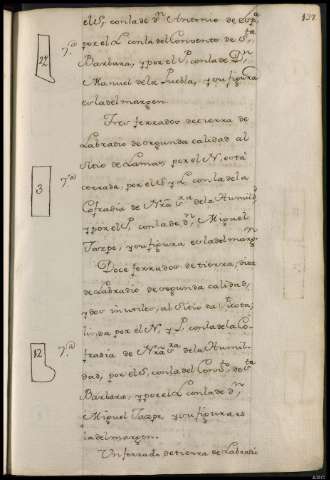 137
el S, con la de Dn Antonio de
por el L con la del Convento de Sta
Barbara, y por el P, con la de Dn
Manuel de la Puebla, y su figura
es la del margen.
Tres ferrados de tierra de
Labradio de segunda calidad al
Sitio de Lamas, por el N, está
cerrada, por el S y L con la de la
Cofradia de Nra Sra de la Humild
y por el P, con la de Dn Miguel
Taxpe, y su figura es la del margn
Doce ferrados de tierra, diez
de Labradio de segunda calidad,
y dos inculto, al Sitio da
linda por el N, y P, con la de la Co-
fradia de Nra Sra de la Humil-
dad, por el S, con la del Convto de Sta
Barbara, y por el L con la de Dn
Miguel Taxpe y su figura es
la del margen.
Un ferrado de tierra de Labradi
22
3
12